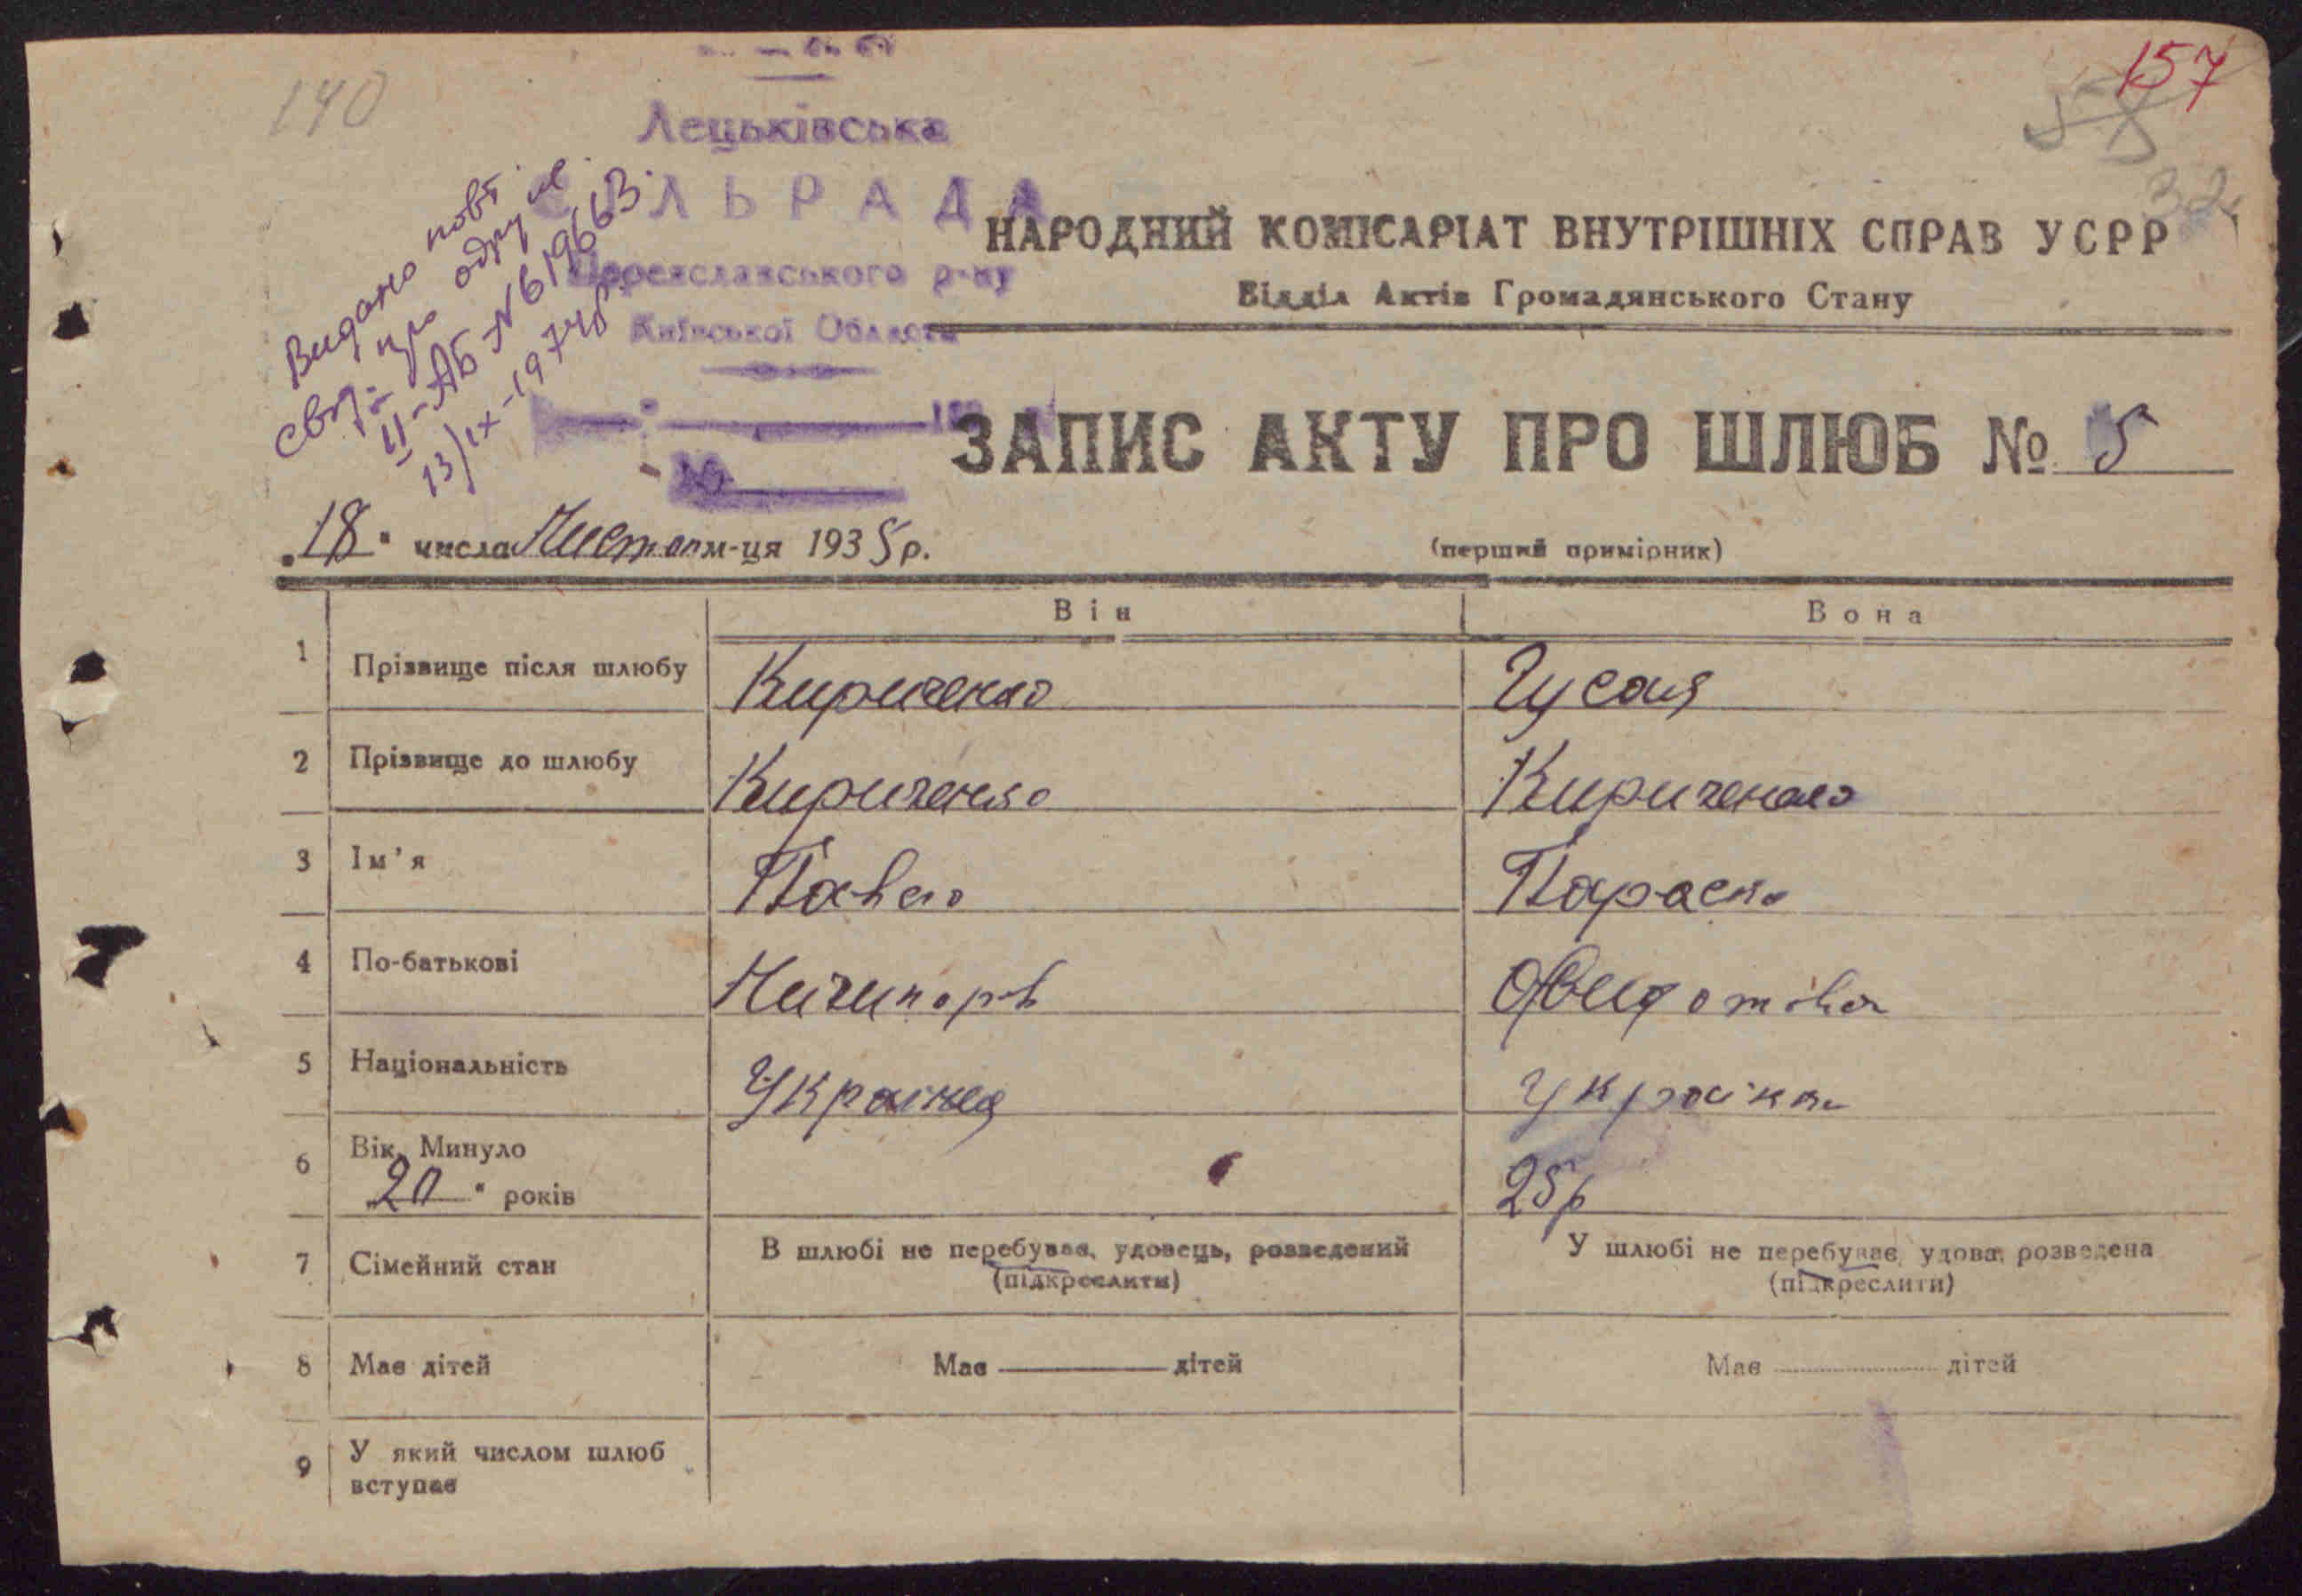 157
140
58
32
Лецьківська
СІЛЬРАДА
Переяславського р-ну
Київської Області
№
Видано повт.
свід. про одруж.
II-АБ №619663
13/IX-1974р
НАРОДНИЙ КОМІСАРІАТ ВНУТРІШНІХ СПРАВ УСРР
Відділ Актів Громадянського Стану
ЗАПИС АКТУ ПРО ШЛЮБ № 5
„18“ числа Листоп м-ця 1935 р.
(перший примірник)
Він Вона
1 Прізвище після шлюбу Кириченко Гусак
2 Прізвище до шлюбу Кириченко Кириченко
3 Ім’я Павло Параска
4 По-батькові Ничипорів Овидотівна
5 Національність Українец Українка
6 Вік. Минуло
„20“ років 25р
7 Сімейний стан В шлюбі не перебував, удовець, розведений У шлюбі не перебуває, удова, розведена
(підкреслити) (підкреслити)
8 Має дітей Має дітей Має дітей
9 У який числом шлюб
вступає